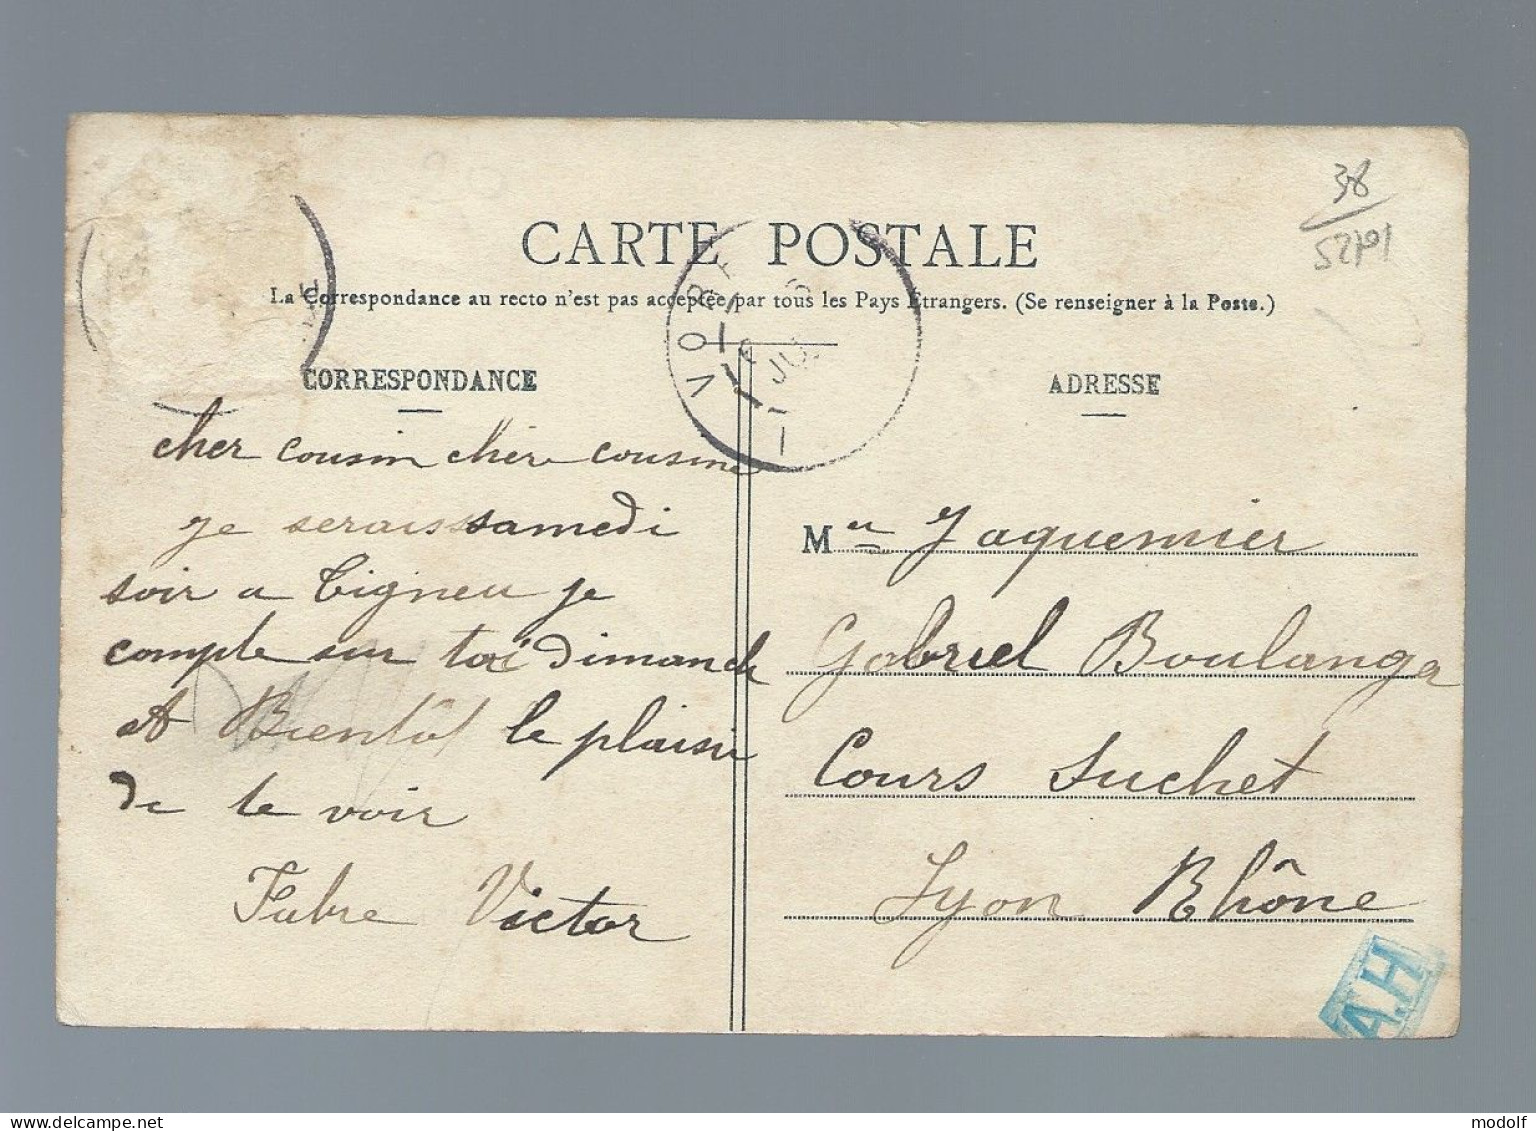 38
52191
CARTE POSTALE
La Correspondance au recto n'est pas acceptée par tous les Pays Étrangers. (Se renseigner à la Poste.)
VOR
JUI
CORRESPONDANCE
cher cousin chère cousine
je serais samedi
soir a Tigneu je
compte sur toi dimanche
A Bientôt le plaisir
de te voir
Fabre Victor
ADRESSE
Mer Jaquemier
Gabriel Boulanger
Cours Suchet
Lyon Rhône
A.H
modolf